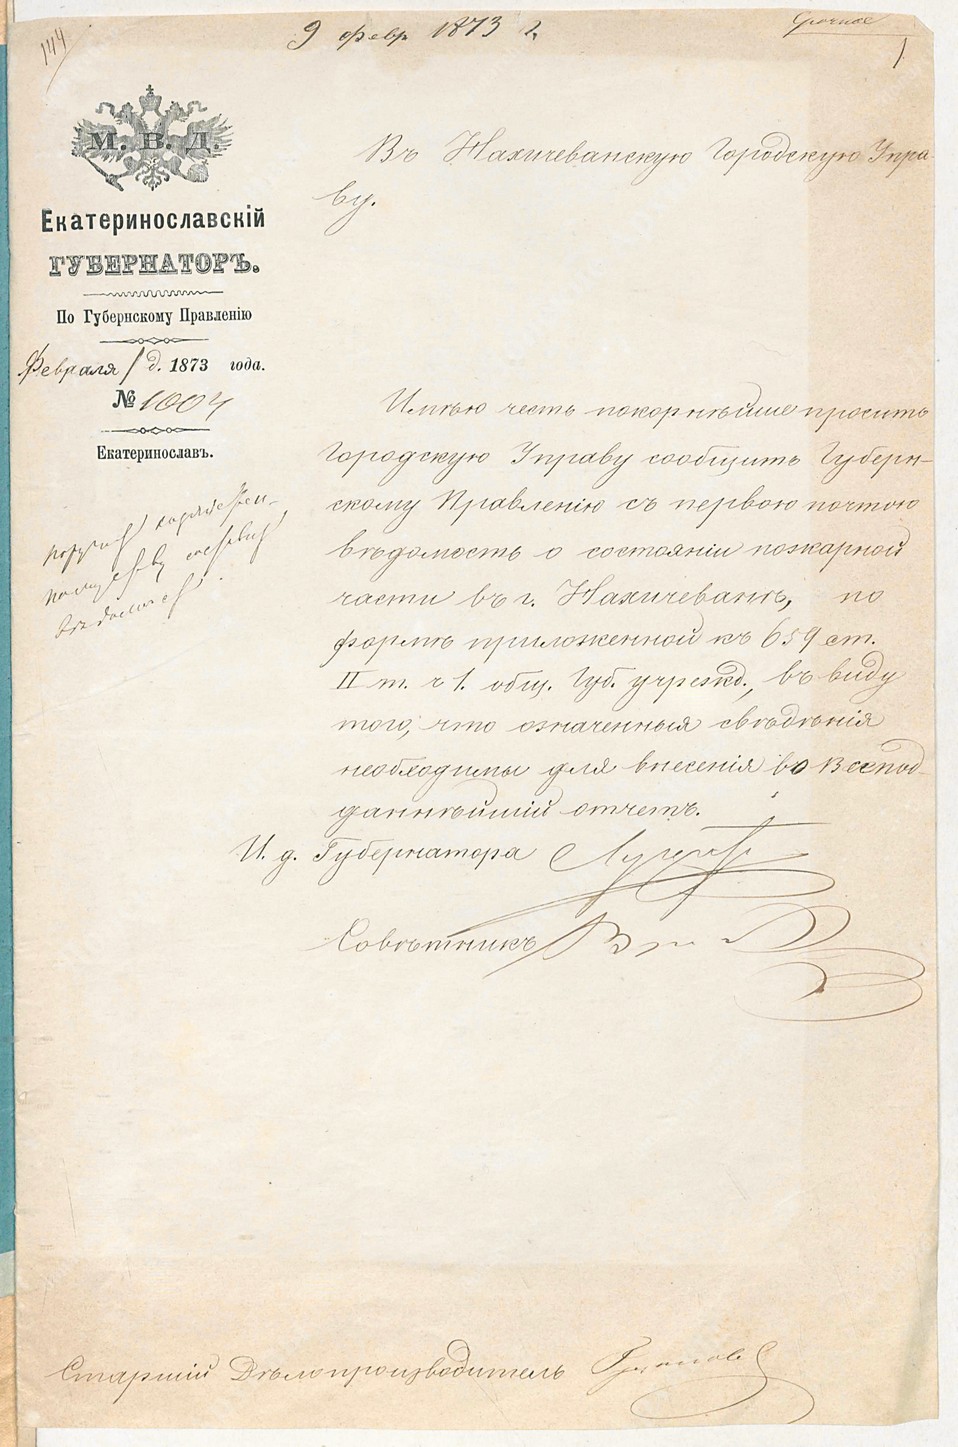 144
9 февр 1873 г.
Срочное
1
М. В. Д.
Екатеринославскій
ГУБЕРНАТОРЪ.
По Губернскому Правленію
Февраля 1 д. 1873 года.
№ 1004
Екатеринославъ.
Въ Нахичеванскую Городскую Упра
ву.
Имѣю честь покорнѣйше просить
Городскую Управу сообщить Губерн-
скому Правленію съ первою почтою
вѣдомость о состояніи пожарной
части въ г. Нахичеванѣ, по
формѣ приложенной къ 659 ст.
II т. ч 1. общ. Губ. учрежд., въ виду
того, что означенныя свѣдѣнія
необходимы для внесенія во Всепод-
даннѣйшій отчетъ.
И. д. Губернатора
Совѣтникъ
вѣдомость
Старшій Дѣлопроизводитель